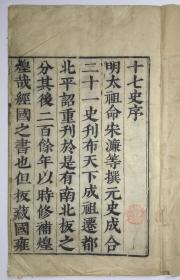 十七史序
明太祖命宋濂等撰元史成合
二十一史刋布天下成祖遷都
北平詔重刋於是有南北板之
分其後二百餘年以時修補煌
煌哉經國之書也但板藏國雍